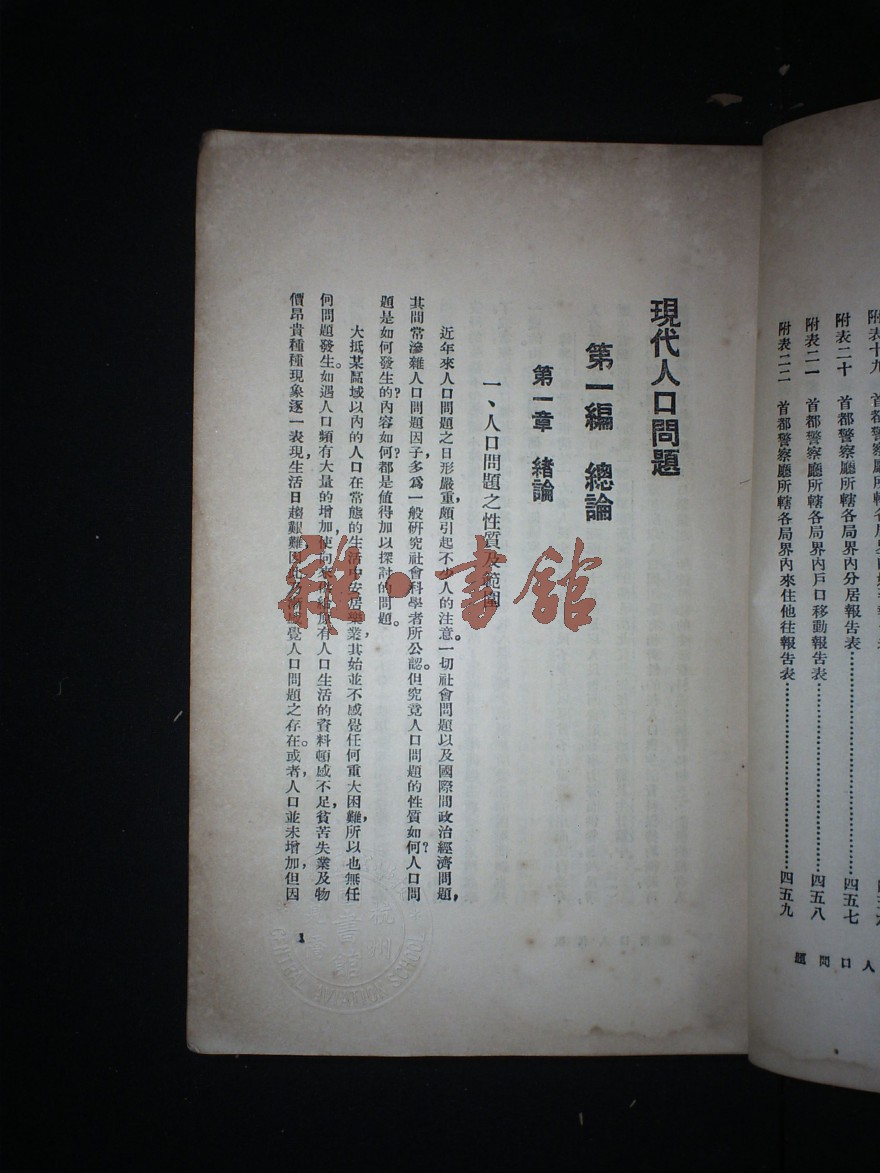 附表十九 首都警察廳所轄各局界內
附表二十 首都警察廳所轄各局界內分居報告表……………………四五七
附表二一 首都警察廳所轄各局界內戶口移動報告表……………………四五八
附表二二 首都警察廳所轄各局界內來住他往報告表……………………四五九
人口問題
現代人口問題
第一編 總論
第一章 緒論
一、人口問題之性質及範圍
近年來人口問題之日形嚴重，頗引起不少人的注意。一切社會問題以及國際間政治經濟問題，
其間常滲雜人口問題因子，多爲一般研究社會科學者所公認。但究竟人口問題的性質如何？人口問
題是如何發生的？內容如何？都是值得加以探討的問題。
大抵某區域以內的人口在常態的生活中安居樂業，其始並不感覺任何重大困難，所以也無任
何問題發生。如遇人口頻有大量的增加，使向來供給原有人口生活的資料頓感不足，貧苦失業及物
價昂貴種種現象逐一表現，生活日趨艱難，因此乃漸感覺人口問題之存在。或者，人口並未增加，但因
1
雜·書館
杭州
書館
CENTRAL AVIATION SCHOOL